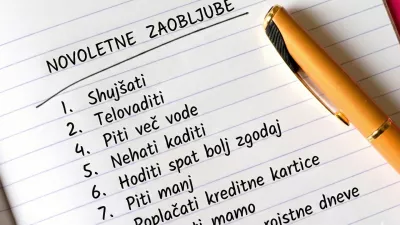 NOVOLETNE ZAOBLJUBE
1. Shujšati
2. Telovaditi
4. Piti več vode
5. Nehati kaditi
6. Hoditi spat bolj zgodaj
7. Piti manj
Poplačati kreditne kartice
mamo
rojstne dneve